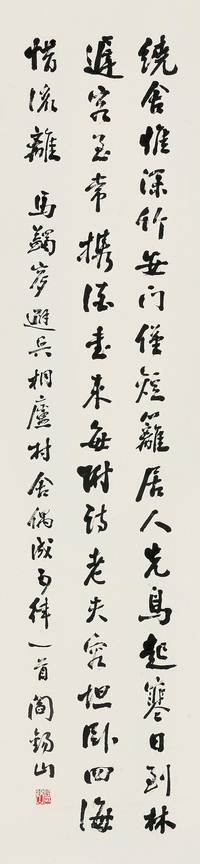 繞舍惟深竹安門僅短籬居人先鳥起寒日到林
遲客至常攜酒書來每附詩老夫容坦卧四海
惜流離 馬蠲叟避兵桐廬村舍偶成五律一首 閻錫山